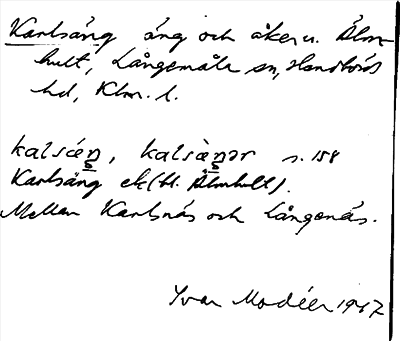 Karlsäng äng och åker u. Älm-
hult, Långemåla sn, Handbörds
hd, Klm. l.
kalsæ̀ŋ, kalsæ̀ŋər s. 158
Karlsäng ek (bl. Älmhult).
Mellan Karlsnäs och Långenäs.
Yvar Modéer 1947